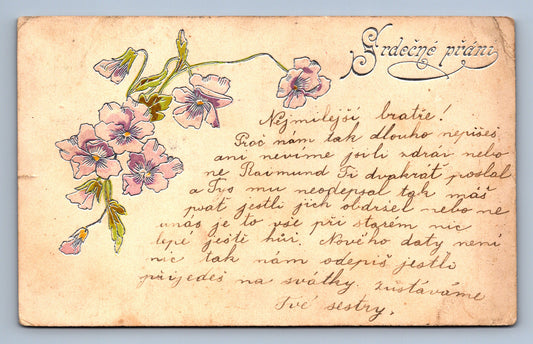 Srdečné přání
Nejmilejší bratře!
Proč nám tak dlouho nepíšeš
ani nevíme jsi li zdráv nebo
ne Raimund Ti dvakrát poslal
a Tys mu neodepsal tak máš
psát jestli jich obdržel nebo ne
u nás je to vše při starém nic
lepé jestě hůř. Nového daty není
nic tak nám odepiš jestli
přijedeš na svátky zůstáváme
Tvé sestry.